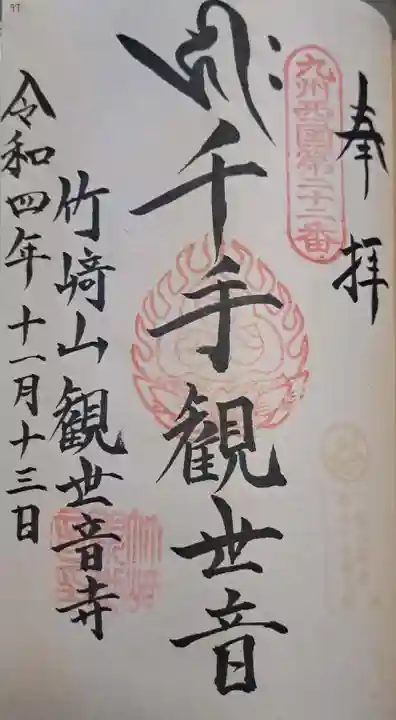 奉拝
九州西国第二十二番
千手観世音
竹﨑山観世音寺
令和四年十一月十三日
97